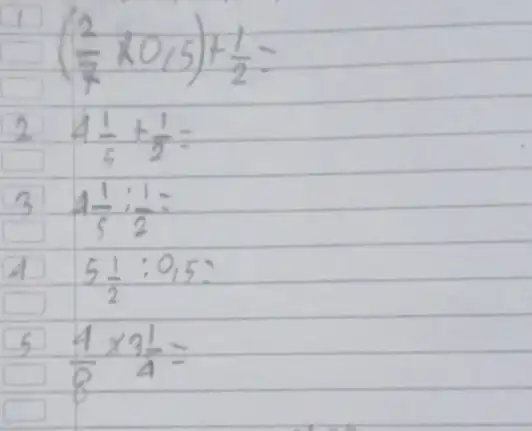 1 (2/7 x 0,5) + 1/2 =
2 4 1/5 + 1/2 =
3 4 1/5 : 1/2 =
4 5 1/2 : 0,5 =
5 4/8 x 3 1/4 =